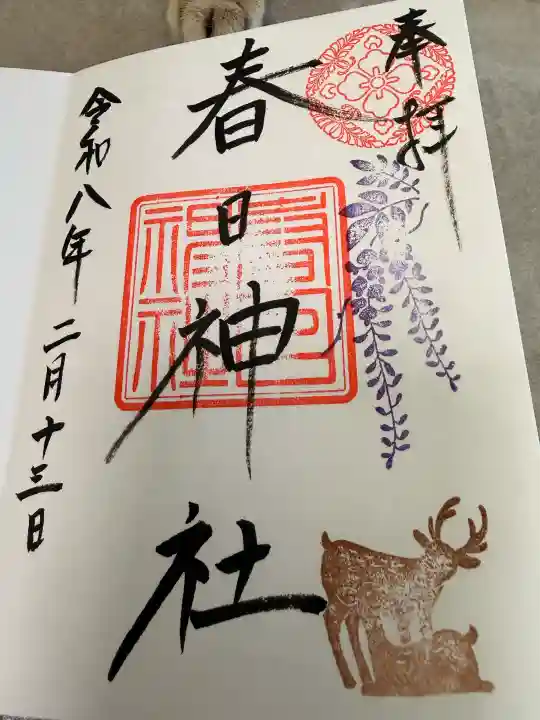 奉拝
春日神社
春日
神社
令和八年 二月十三日